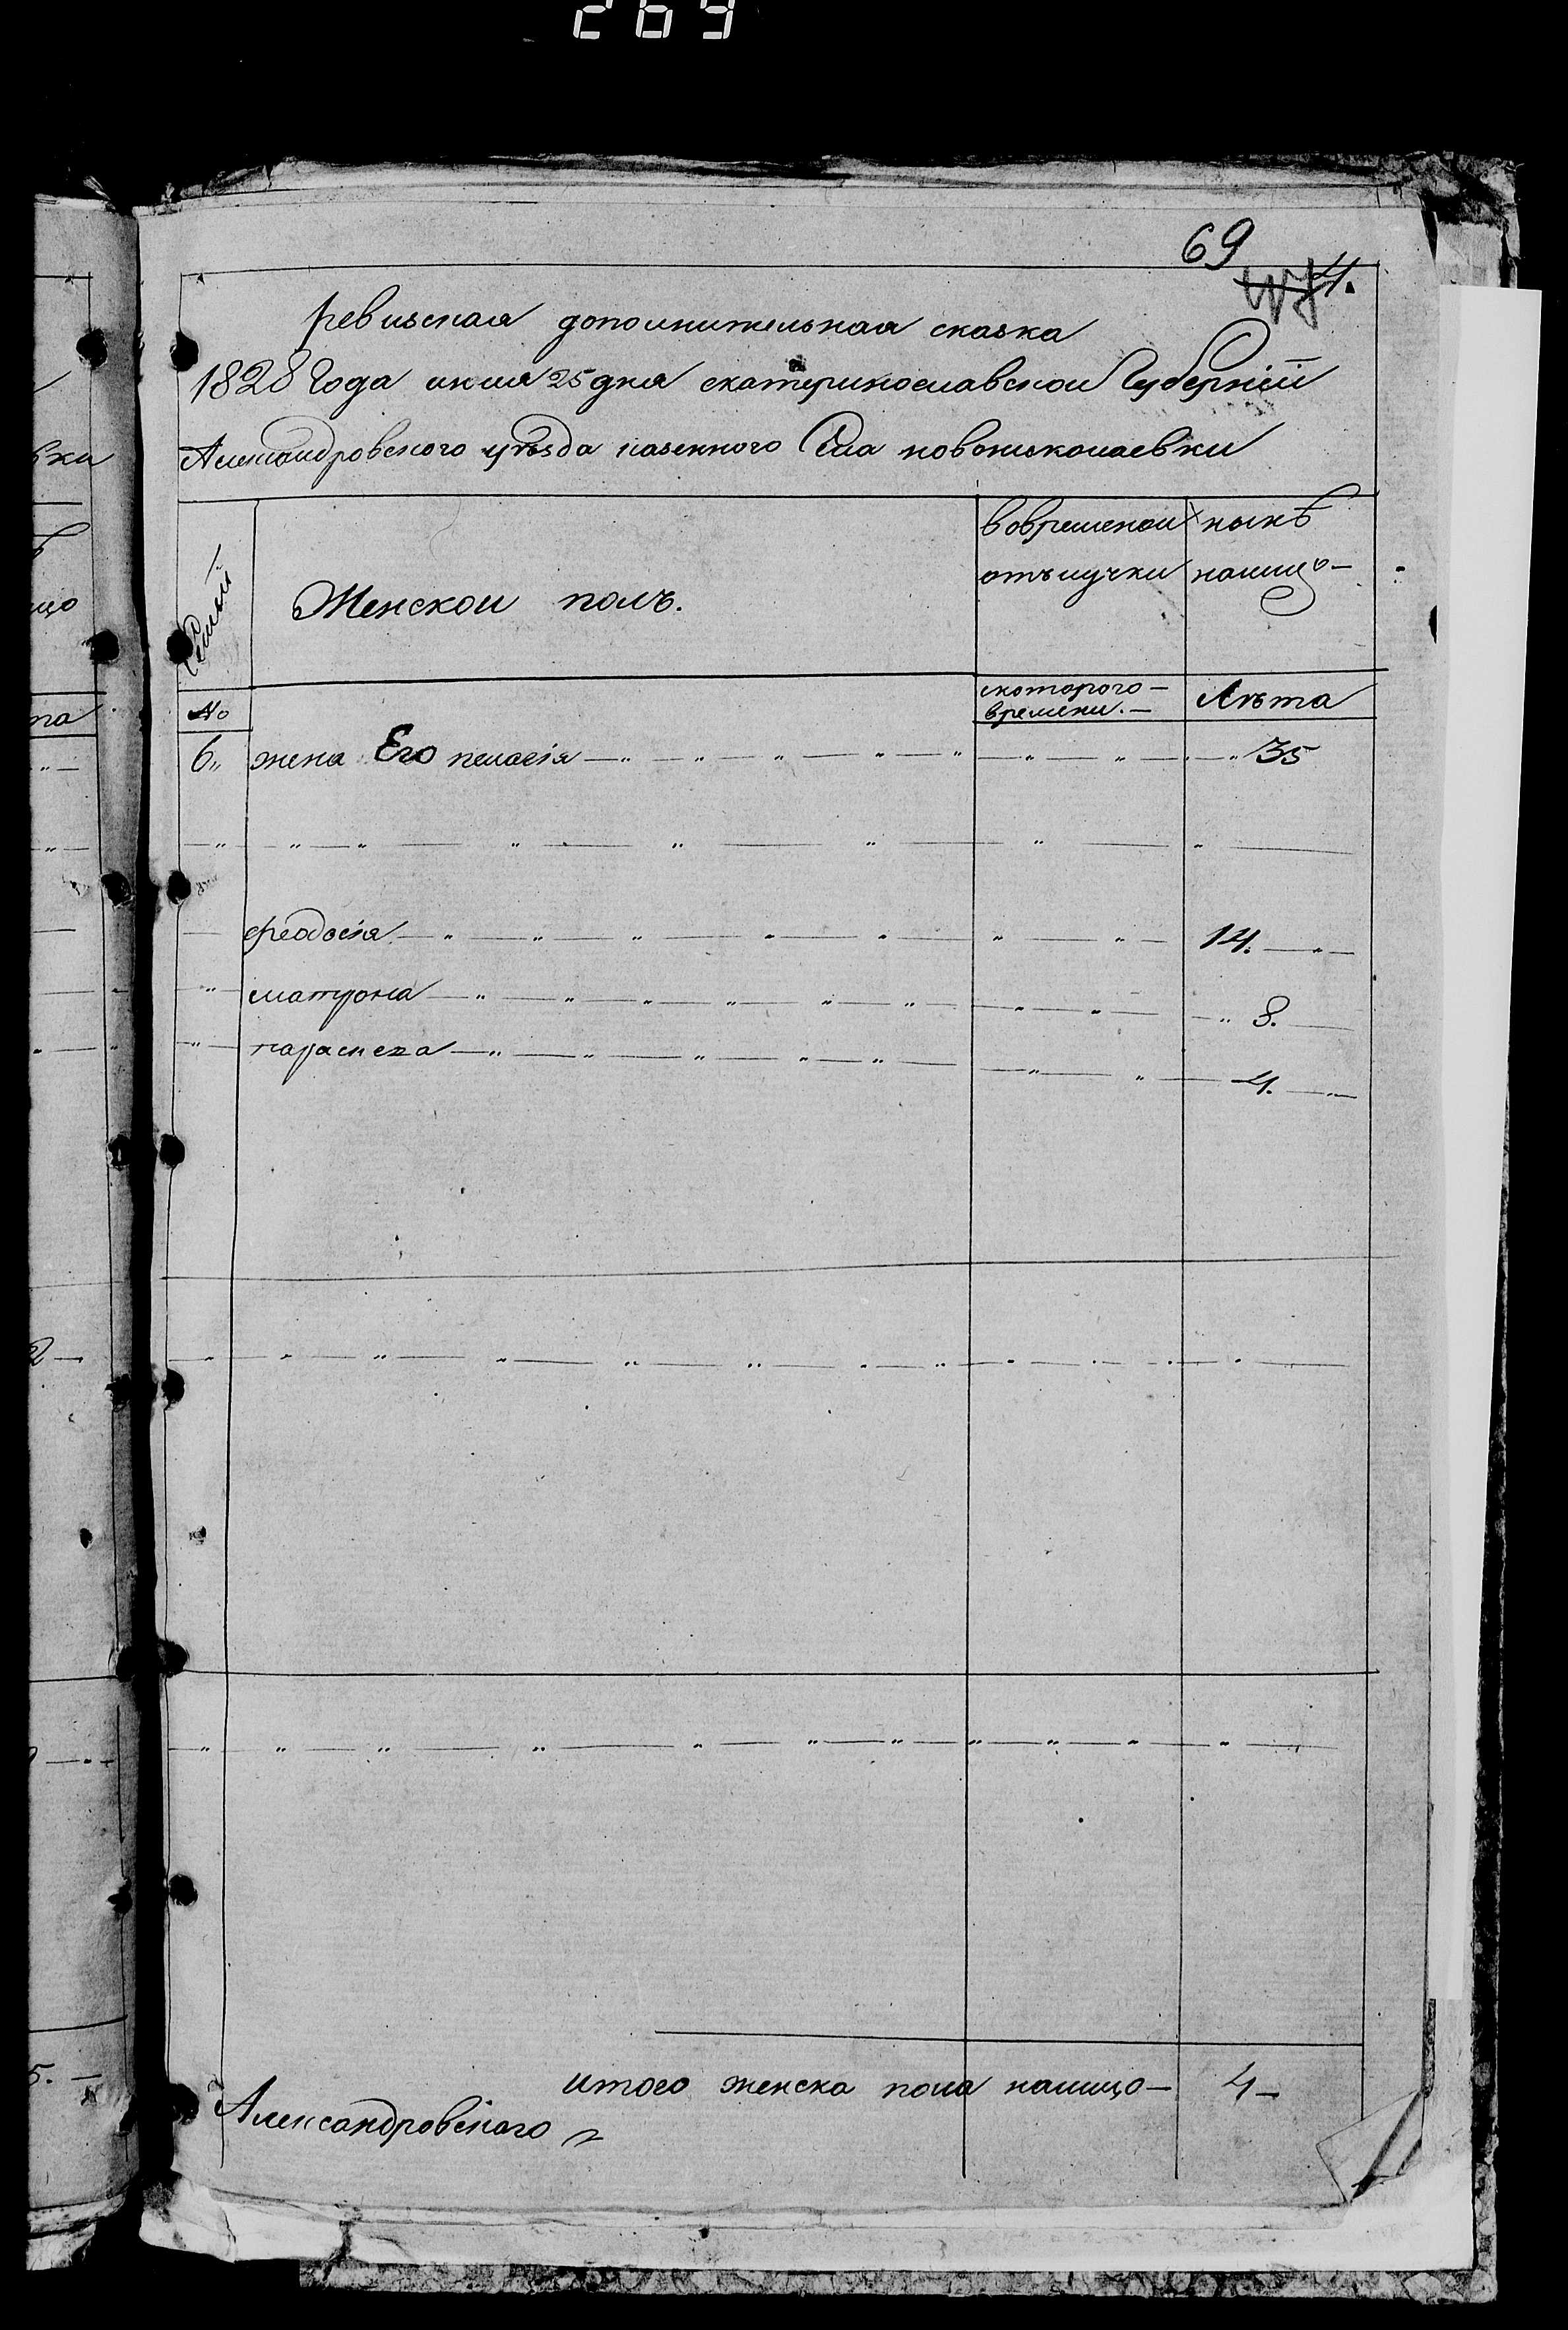 269
69
4.
ревизская дополнительная сказка
1828 Года июля 25 дня екатеринославской Губерніи
Александровского уѣзда казенного Села новониколаевки
Семьи
Женской полъ.
вовременой отълучки
нынѣ налицо-
№
скоторого-
времени.-
Лѣта
6,, жена Его пелагія 35
феодосія 14.
матрона 8.
параскева 4.
итого женска пола налицо- 4-
Александровского
вки
ѣ
цо
та
2-
5.-